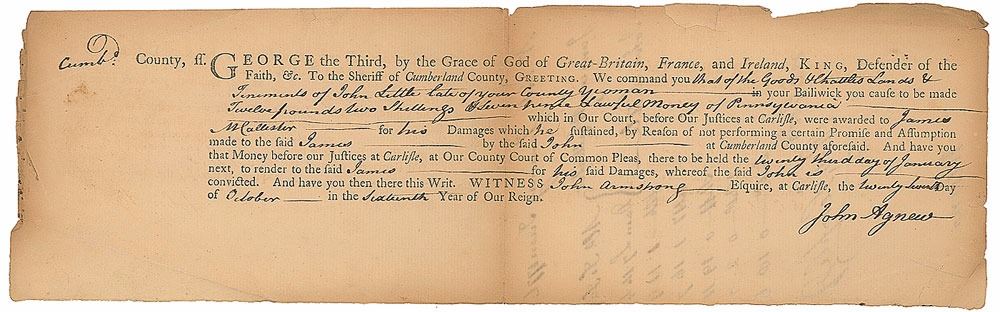 Cumbd. County, ss. GEORGE the Third, by the Grace of God of Great-Britain, France, and Ireland, KING, Defender of the
Faith, &c. To the Sheriff of Cumberland County, GREETING. We command you that of the Goods & Chattles Lands &
Tinements of John Little late of your County Yeoman in your Bailiwick you cause to be made
Twelve pounds two Shillings & Seven pence Lawful Money of Pennsylvania
which in Our Court, before Our Justices at Carlisle, were awarded to James
McCallester for his Damages which he sustained, by Reason of not performing a certain Promise and Assumption
made to the said James by the said John at Cumberland County aforesaid. And have you
that Money before our Justices at Carlisle, at Our County Court of Common Pleas, there to be held the twenty third day of January
next, to render to the said James for his said Damages, whereof the said John is
convicted. And have you then there this Writ. WITNESS John Armstrong Esquire, at Carlisle, the twenty Day
of October in the Sixteenth Year of Our Reign.
John Agnew